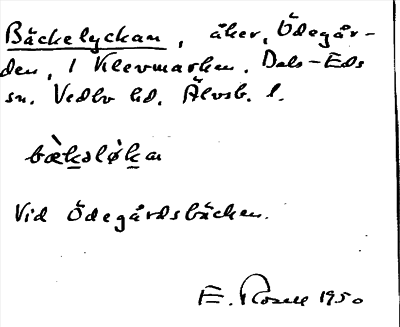 Bäckelyckan, åker, Ödegår-
den, 1 Klevmarken, Dals-Eds
sn. Vedbo hd. Älvsb. l.
bæ̀kəlỳkan
Vid Ödegårdsbäcken.
E. Rosell 1950